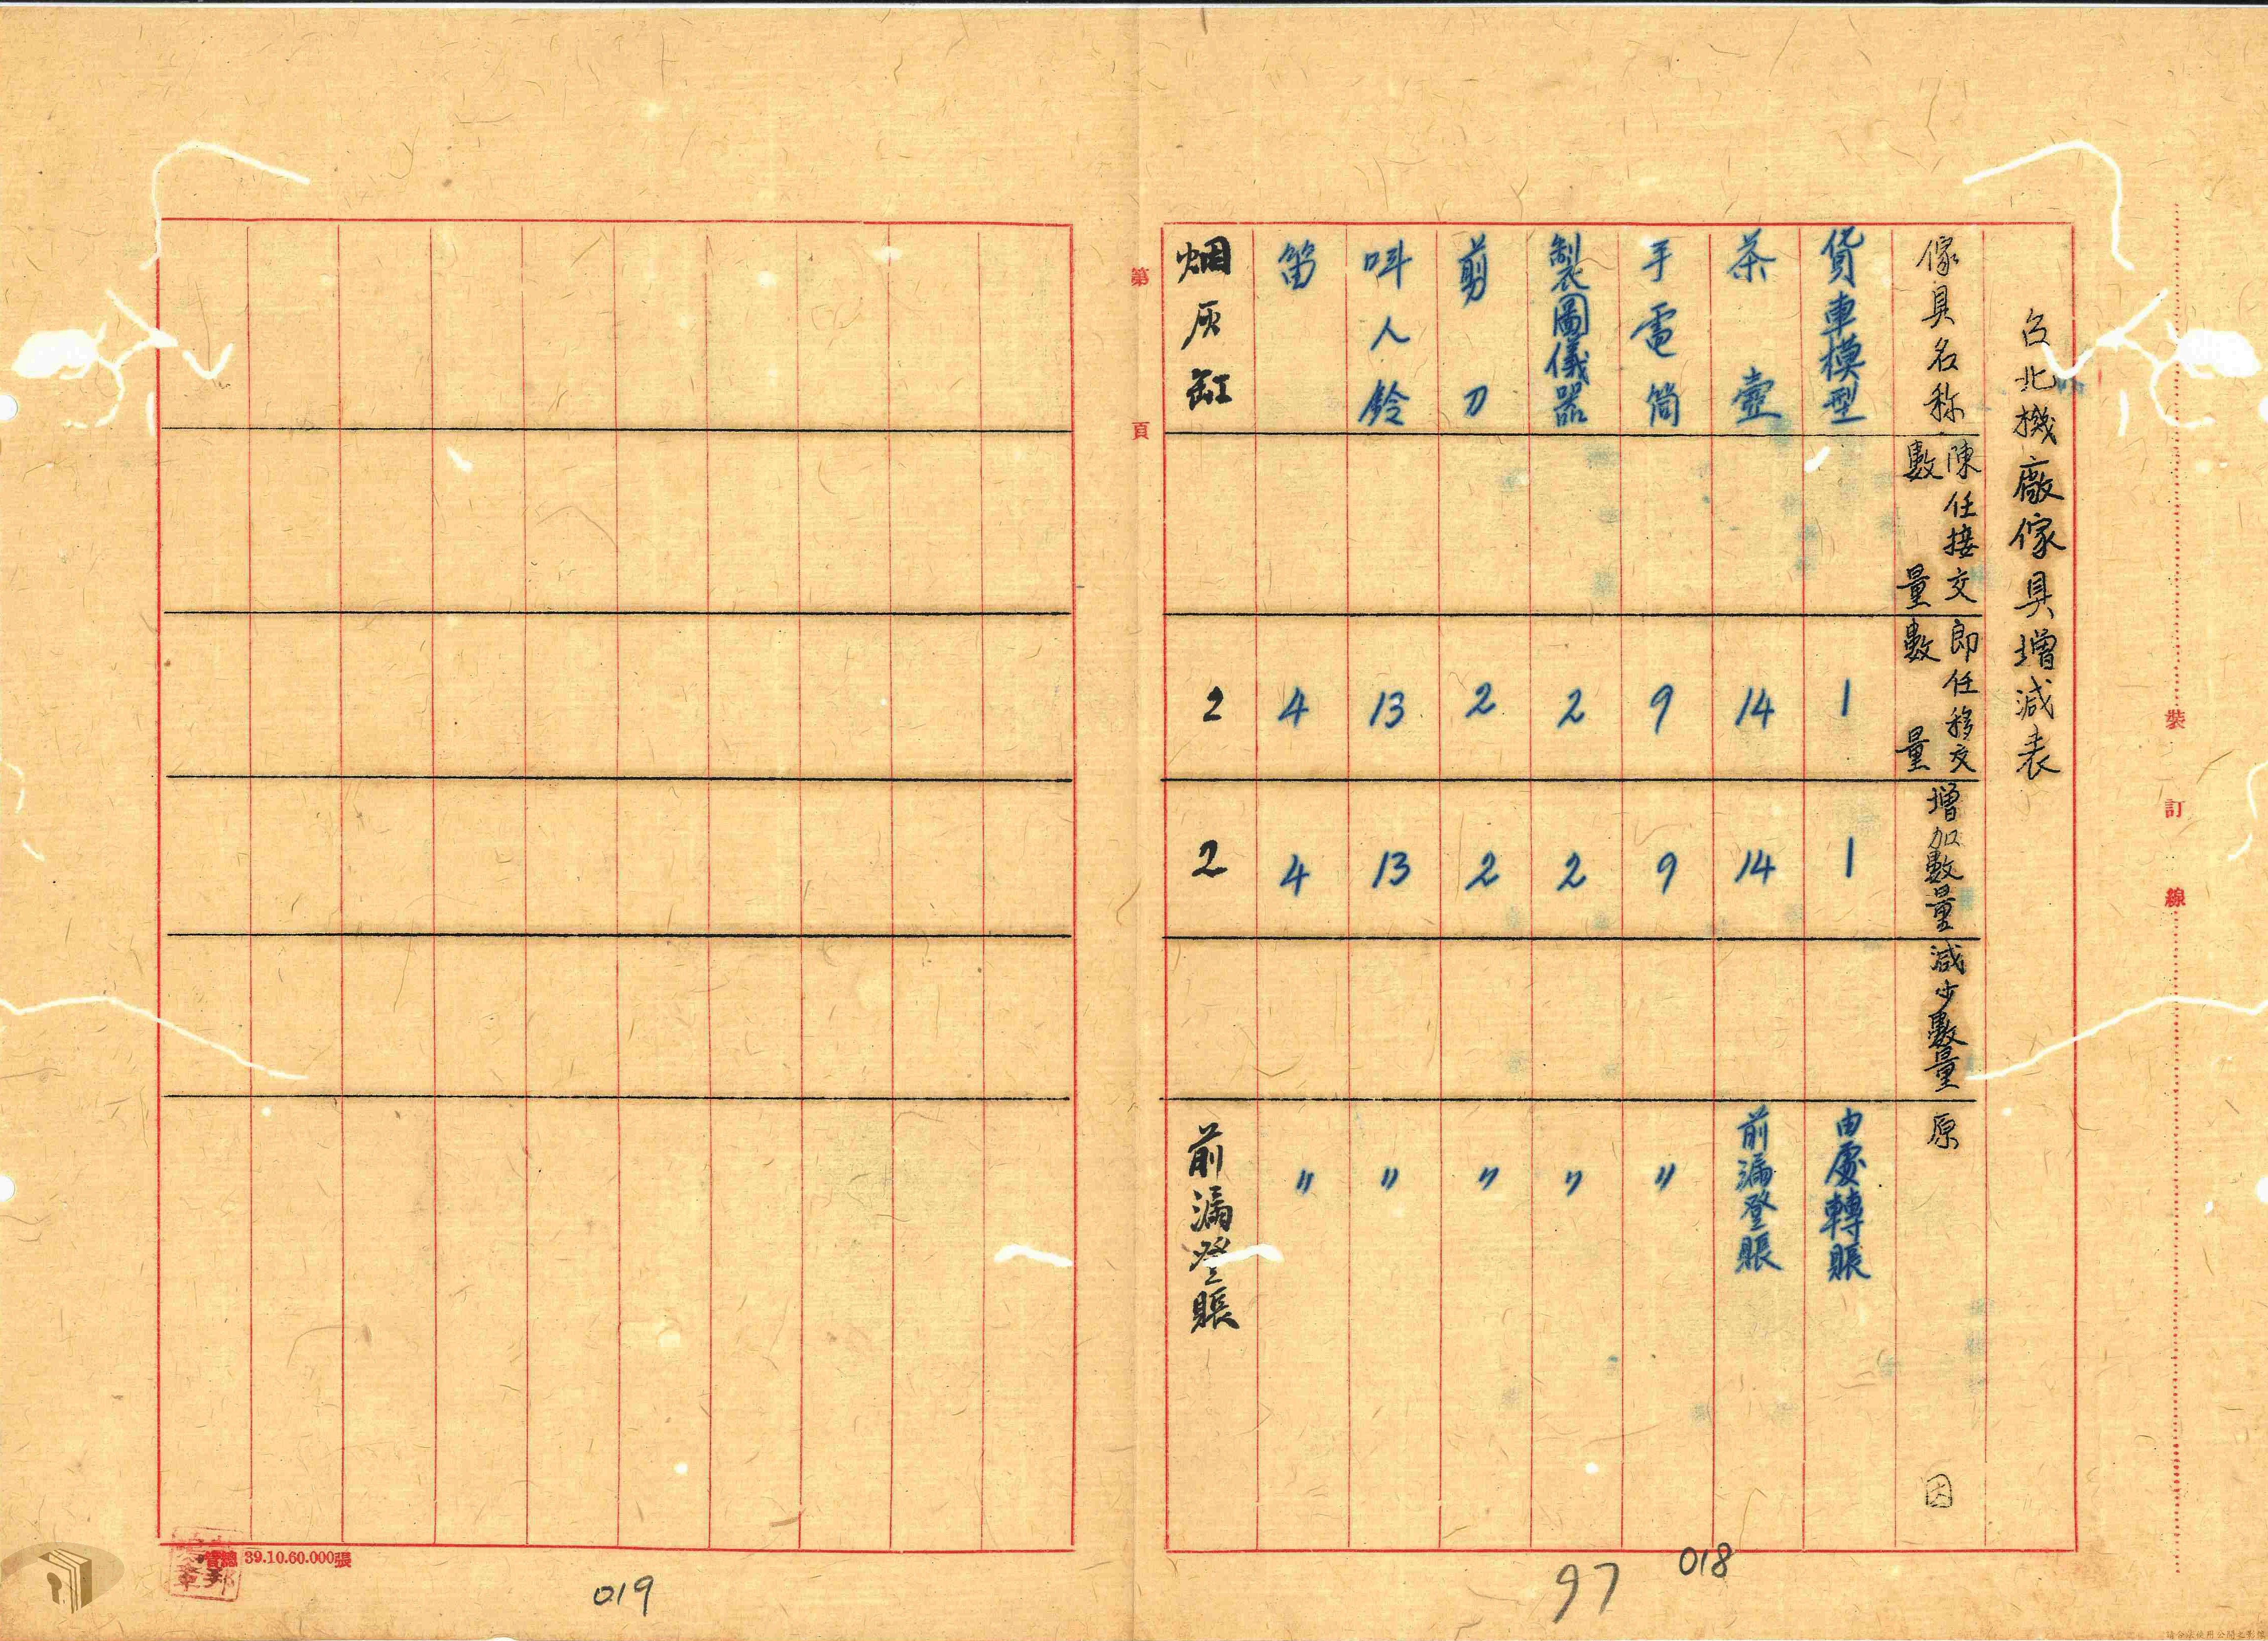 台北機廠傢具增減表
傢具名称
陳任接交數量
即任移交數量
增加數量
減少數量
原因
貨車模型 1 1 由處轉賬
茶壺 14 14 前漏登賬
手電筒 9 9 〃
製圖儀器 2 2 〃
剪刀 2 2 〃
叫人鈴 13 13 〃
笛 4 4 〃
烟灰缸 2 2 前漏登賬
裝訂線
第頁
97
018
019
39.10.60.000張